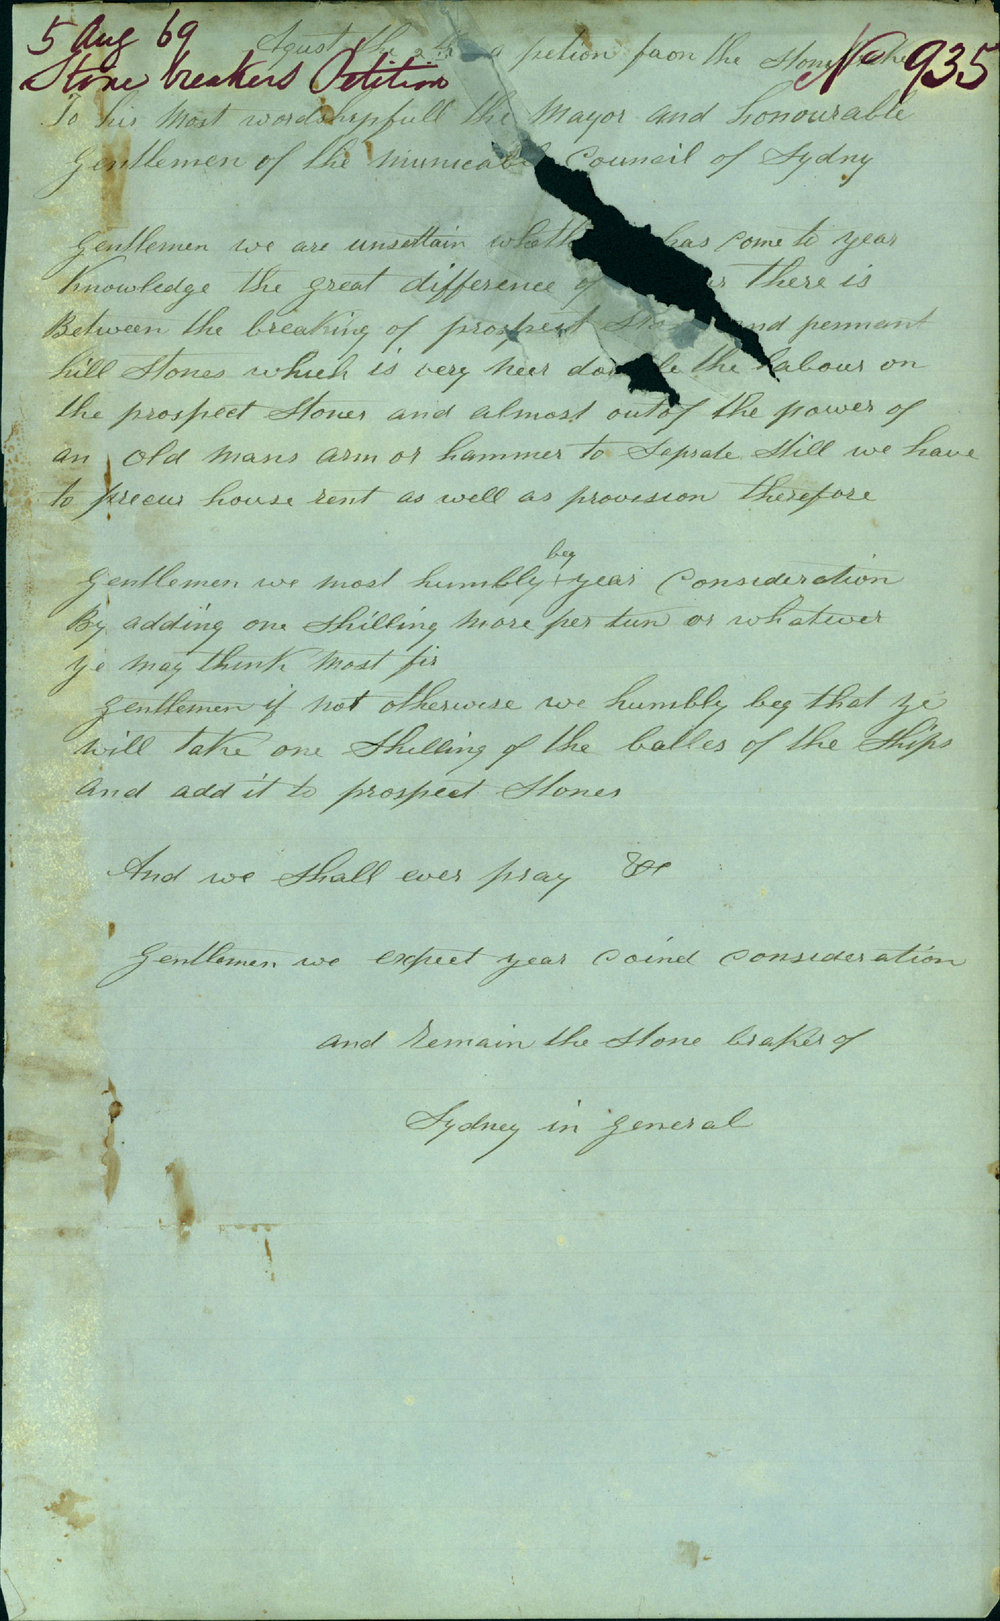 5 Aug 69
Stone breakers Petition
No 935
Agust the a petion faon the Stone
To his Most wordshypfull the Mayor and honourable
Gentlemen of the municabel Council of Sydny
Gentlemen we are unsertain has come to year
Knowledge the great difference of there is
Between the breaking of prospect and pennant
hill Stones which is very neer the labour on
the prospect Stones and almost out of the power of
an old mans arm or hammer to Seprate Still we have
to precur house rent as well as provision therefore
Gentlemen we most humbly beg year Consideration
By adding one Shilling more per tun or whatever
ye may think Most fir
Gentlemen if not otherwise we humbly beg that ye
will take one Shilling of the balles of the Ships
and add it to prospect Stones
And we Shall ever pray &c
Gentlemen we expect year coind consideration
and remain the Stone braker of
Sydney in general